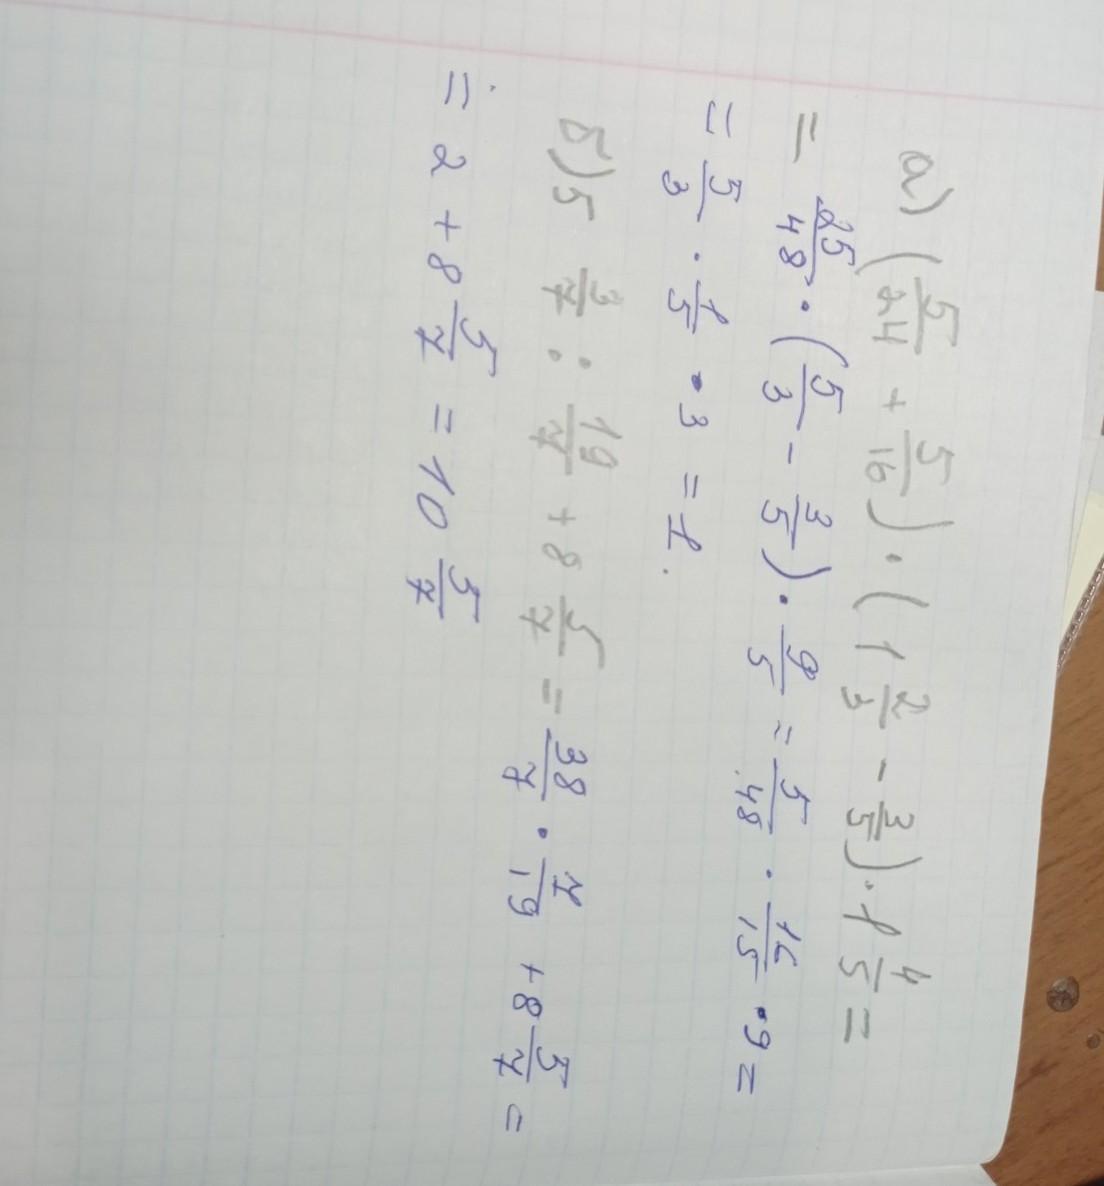 а) (5/24 + 5/16) · (1 2/3 - 3/5) · 1 4/5 =
= 25/48 · (5/3 - 3/5) · 9/5 = 5/48 · 16/15 · 9 =
= 5/3 · 1/5 · 3 = 1.
б) 5 3/7 : 19/7 + 8 5/7 = 38/7 · 7/19 + 8 5/7 =
= 2 + 8 5/7 = 10 5/7